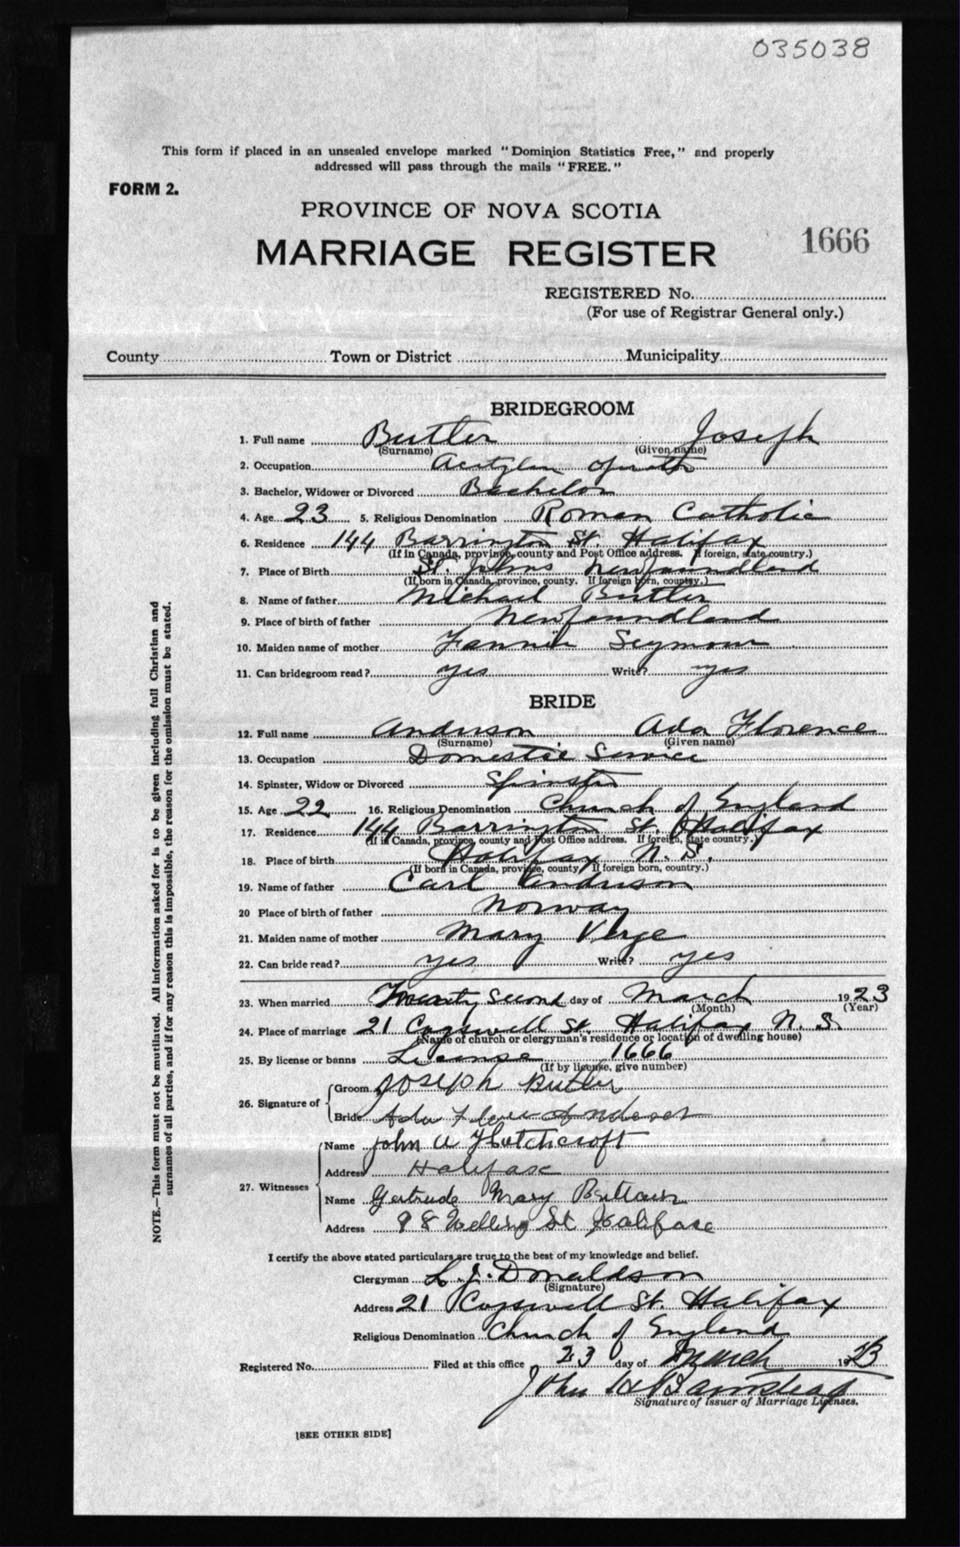 035038
This form if placed in an unsealed envelope marked "Dominion Statistics Free," and properly
addressed will pass through the mails "FREE."
FORM 2.
PROVINCE OF NOVA SCOTIA
MARRIAGE REGISTER 1666
REGISTERED No.
(For use of Registrar General only.)
County Town or District Municipality
BRIDEGROOM
1. Full name Butler Joseph
(Surname) (Given name)
2. Occupation Acetylen operator
3. Bachelor, Widower or Divorced Bachelor
4. Age 23 5. Religious Denomination Roman Catholic
6. Residence 144 Barrington St. Halifax
(If in Canada, province, county and Post Office address. If foreign, state country.)
7. Place of Birth St. Johns Newfoundland
(If born in Canada, province, county. If foreign born, country.)
8. Name of father Michael Butler
9. Place of birth of father Newfoundland
10. Maiden name of mother Fannie Seymour
11. Can bridegroom read? yes Write? yes
BRIDE
12. Full name Anderson Ada Florence
(Surname) (Given name)
13. Occupation Domestic Service
14. Spinster, Widow or Divorced Spinster
15. Age 22 16. Religious Denomination Church of England
17. Residence 144 Barrington St. Halifax
(If in Canada, province, county and Post Office address. If foreign, state country.)
18. Place of birth Halifax N. S.
(If born in Canada, province, county. If foreign born, country.)
19. Name of father Carl Anderson
20 Place of birth of father Norway
21. Maiden name of mother Mary Verge
22. Can bride read? yes Write? yes
23. When married Twenty Second day of March 1923
(Month) (Year)
24. Place of marriage 21 Cogswell St. Halifax N. S.
(Name of church or clergyman's residence or location of dwelling house)
25. By license or banns License 1666
(If by license, give number)
26. Signature of
Groom Joseph Butler
Bride Ada Anderson
27. Witnesses
Name John Hutchcroft
Address Halifax
Name Gertrude Mary
Address 98 St Halifax
I certify the above stated particulars are true to the best of my knowledge and belief.
Clergyman L. J. Donaldson
(Signature)
Address 21 Cogswell St. Halifax
Religious Denomination Church of England
Registered No. Filed at this office 23 day of March 1923
John
Signature of Issuer of Marriage Licenses.
[SEE OTHER SIDE]
NOTE.—This form must not be mutilated. All information asked for is to be given including full Christian and
surnames of all parties, and if for any reason this is impossible, the reason for the omission must be stated.